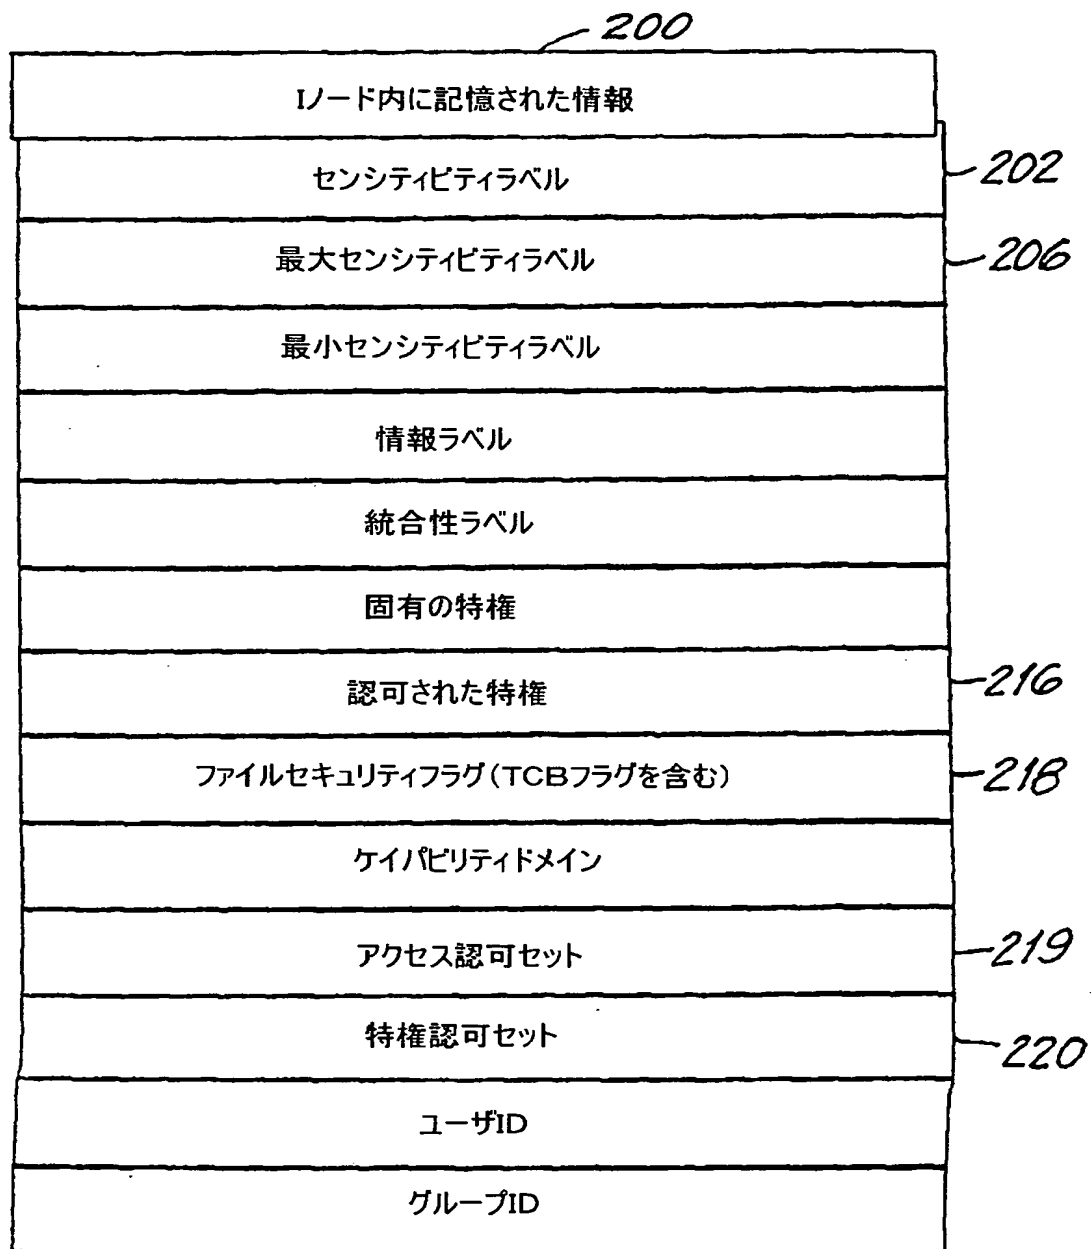 200
Iノード内に記憶された情報
センシティビティラベル 202
最大センシティビティラベル 206
最小センシティビティラベル
情報ラベル
統合性ラベル
固有の特権
認可された特権 216
ファイルセキュリティフラグ(TCBフラグを含む) 218
ケイパビリティドメイン
アクセス認可セット 219
特権認可セット 220
ユーザID
グループID